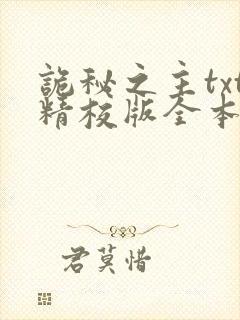 詭秘之主txt
精校版全本
君莫惜